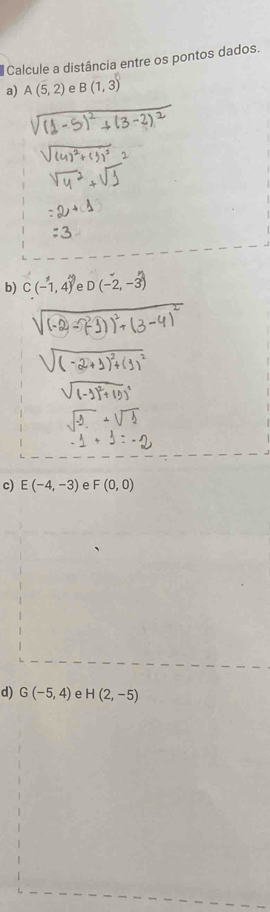 Calcule a distância entre os pontos dados.
a) A (5, 2) e B (1, 3)
√(1-5)² + (3-2)²
√(4)² + (1)² 2
√4² + √1
= 2 + 1
= 3
b) C (−1, 4) e D (−2, −3)
√(-2 - (-1))² + (3-4)²
√(-2+1)² + (1)²
√(-1)² + (1)²
√-1 + √1
-1 + 1 = -2
c) E (−4, −3) e F (0, 0)
d) G (−5, 4) e H (2, −5)